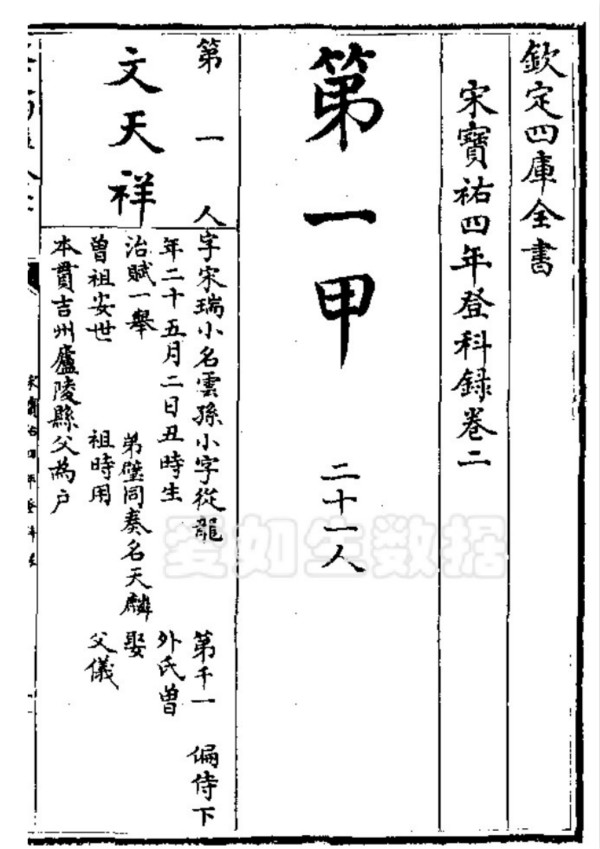 欽定四庫全書
宋寶祐四年登科録卷二
第一甲 二十一人
第一人
文天祥
字宋瑞小名雲孫小字從龍 第千一 偏侍下
年二十五月二日丑時生 外氏曽
治賦一舉 弟璧同奏名天麟 娶
曽祖安世 祖時用 父儀
本貫吉州廬陵縣父為户
愛如生数据